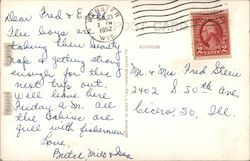 Dear Fred & E
The boys are
taking their beauty
nap & getting strong
enough for this
next trip out.
Will leave here
Friday A.M. all the
cabins are
full with fishermen
Love
WEBSTER
1 PM
1952
WIS.
POST CARD
ADDRESS
2 CENTS 2
Mr. & Mrs. Fred Stein
2402 S 50th ave.
Cicero, 50, Ill.